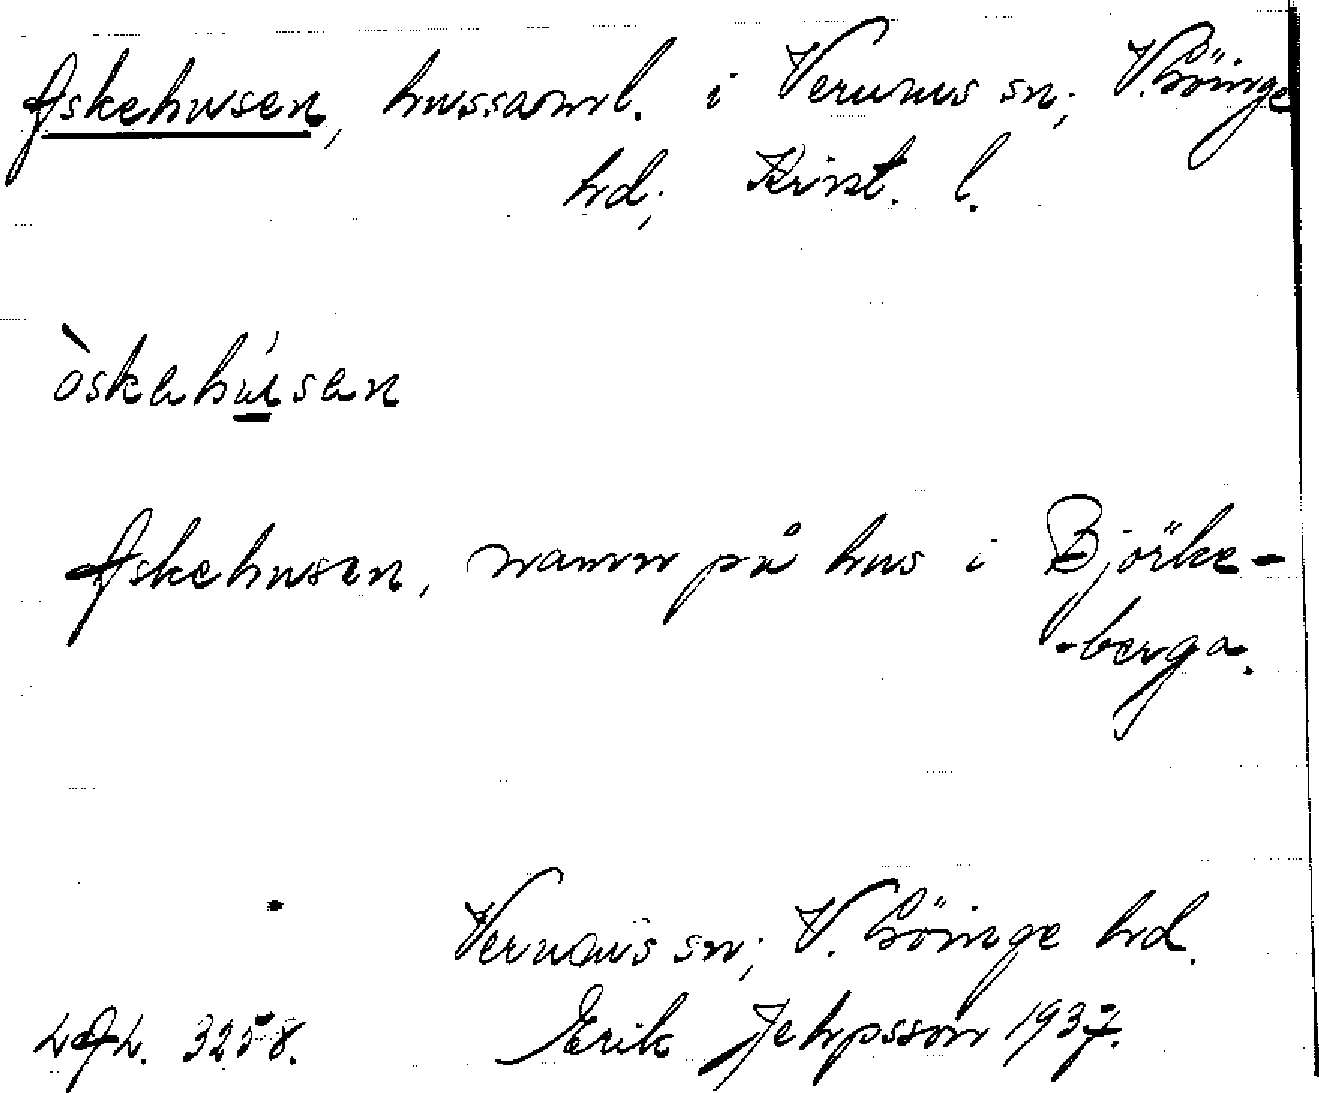 Askehusen, hussaml. i Verums sn; V. Göinge
hd; Krist. l.
òskehúsen
Askehusen, namn på hus i Björke-
-berga.
Verums sn; V. Göinge hd.
LAL. 3258. Erik Jeppsson 1937.